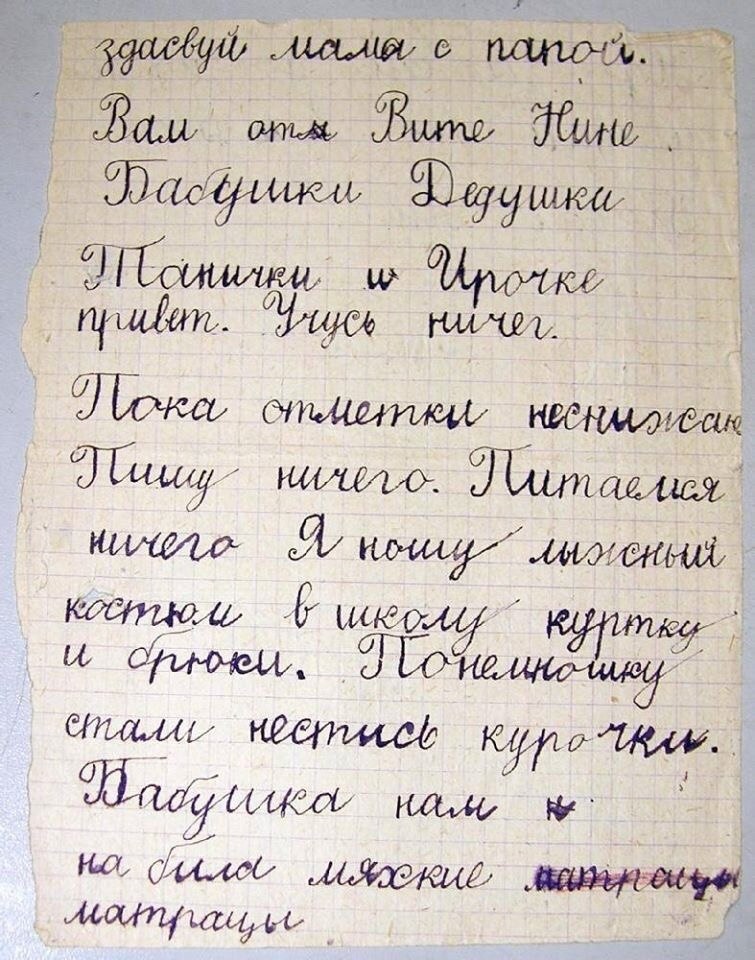 здасвуй мама с папой.
Вам от Вите Нине
Бабушки Дедушки
Танички и Ирочке
привет. Учусь ничег.
Пока отметки неснижаю
Пишу ничего. Питаемся
ничего Я ношу лыжный
костюм в школу куртку
и брюки. Понемношку
стали нестись курочки.
Бабушка нам н
на била мяхкие матрацы
матрацы